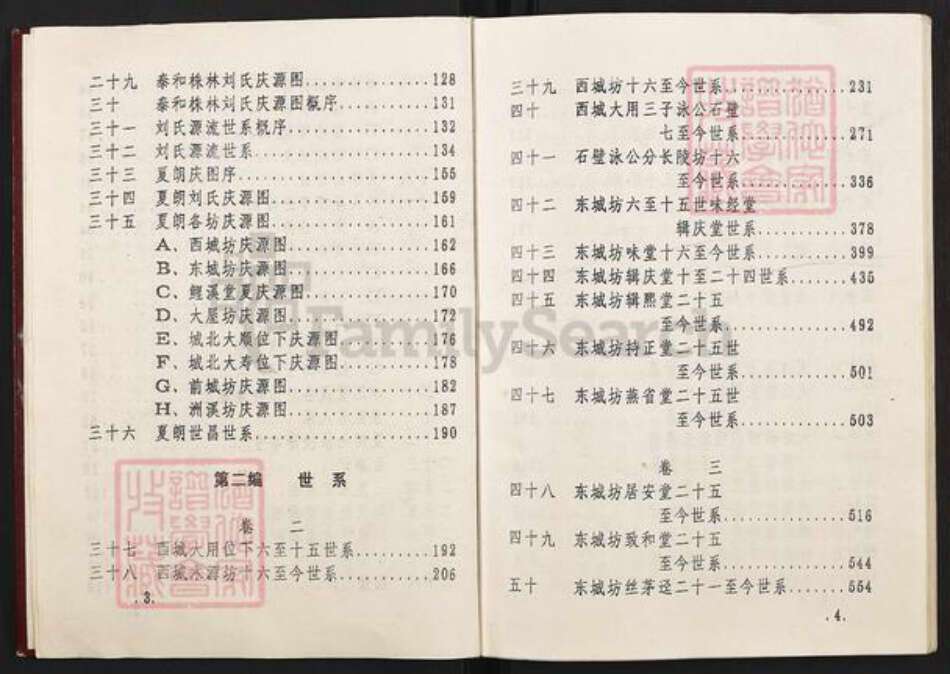 二十九 泰和株林刘氏庆源图................128
三十 泰和株林刘氏庆源图概序............131
三十一 刘氏源流世系概序..................132
三十二 刘氏源流世系......................134
三十三 夏朗庆图序........................155
三十四 夏朗刘氏庆源图....................159
三十五 夏朗各坊庆源图....................161
A、西城坊庆源图..................162
B、东城坊庆源图..................166
C、鲤溪堂夏庆源图................170
D、大屋坊庆源图..................172
E、城北大顺位下庆源图............176
F、城北大寿位下庆源图............178
G、前城坊庆源图..................182
H、洲溪坊庆源图..................187
三十六 夏朗世昌世系......................190
第二编 世系
卷二
三十七 西城大用位下六至十五世系..........192
三十八 西城水源坊十六至今世系............206
.3.
三十九 西城坊十六至今世系................231
四十 西城大用三子泳公石壁
七至今世系................271
四十一 石壁泳公分长陵坊十六
至今世系................336
四十二 东城坊六至十五世味经堂
辑庆堂世系..............378
四十三 东城坊味堂十六至今世系............399
四十四 东城坊辑庆堂十至二十四世系........435
四十五 东城坊辑熙堂二十五
至今世系................492
四十六 东城坊持正堂二十五世
至今世系................501
四十七 东城坊燕省堂二十五世
至今世系................503
卷三
四十八 东城坊居安堂二十五
至今世系................516
四十九 东城坊致和堂二十五
至今世系................544
五十 东城坊丝茅迳二十一至今世系........554
.4.
FamilySearch